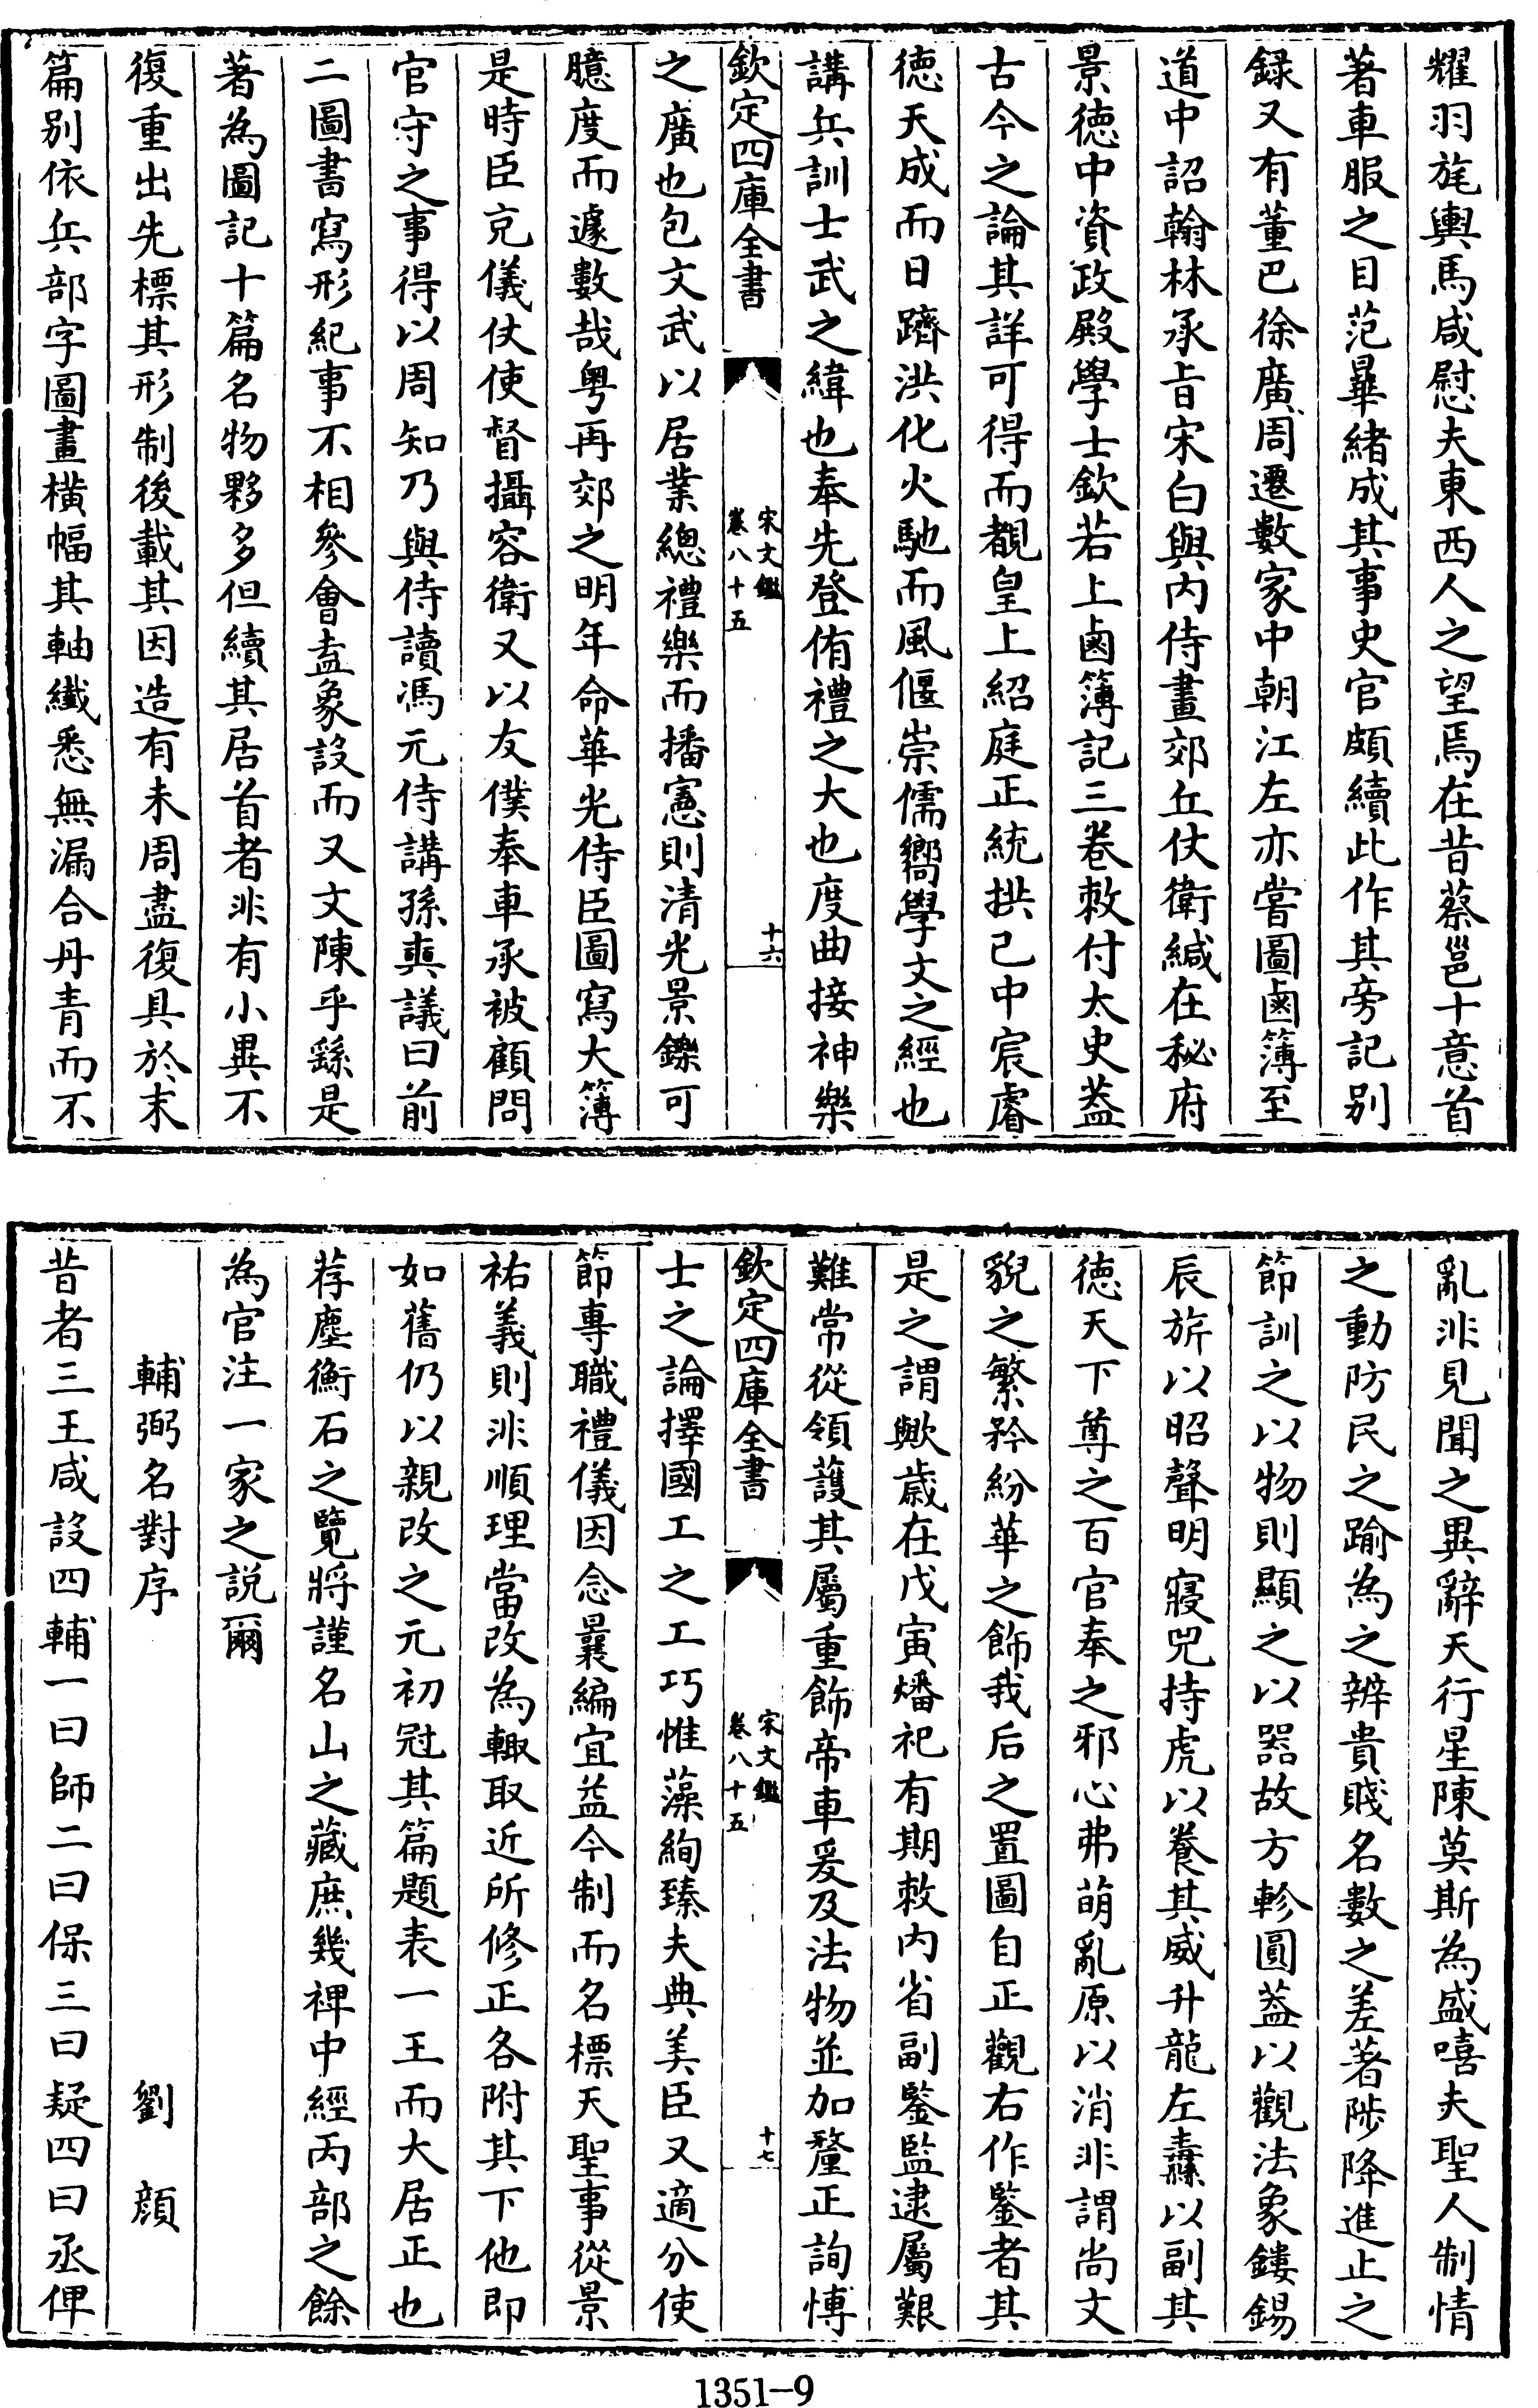 耀羽旄輿馬咸慰夫東西人之望焉在昔蔡邕十意首
著車服之目范曅緒成其事史官頗續此作其旁記别
録又有董巴徐廣周遷數家中朝江左亦嘗圖鹵簿至
道中詔翰林承㫖宋白與内侍畫郊丘仗衛緘在秘府
景徳中資政殿學士欽若上鹵簿記三卷敕付太史葢
古今之論其詳可得而覩皇上紹庭正統拱己中宸睿
徳天成而日躋洪化火馳而風偃崇儒嚮學文之經也
講兵訓士武之緯也奉先登侑禮之大也度曲接神樂
欽定四庫全書
宋文鑑
卷八十五
十六
之廣也包文武以居業總禮樂而播憲則清光景鑠可
臆度而遽數哉粤再郊之明年命華光侍臣圖寫大簿
是時臣克儀仗使督攝容衛又以友僕奉車承被顧問
官守之事得以周知乃與侍讀馮元侍講孫奭議曰前
二圖書寫形紀事不相參會盍象設而又文陳乎繇是
著為圖記十篇名物夥多但續其居首者非有小異不
復重出先標其形制後載其因造有未周盡復具於末
篇别依兵部字圖畫橫幅其軸纎悉無漏合丹青而不
亂非見聞之異辭天行星陳莫斯為盛嘻夫聖人制情
之動防民之踰為之辨貴賤名數之差著陟降進止之
節訓之以物則顯之以器故方軫圓葢以觀法象鏤錫
辰旂以昭聲明寢兕持虎以養其威升龍左纛以副其
徳天下尊之百官奉之邪心弗萌亂原以消非謂尚文
貌之繁矜紛華之飾我后之置圖自正觀右作鑒者其
是之謂歟歳在戊寅燔祀有期敕内省副鑒監逮屬艱
難常從領䕶其屬重飾帝車爰及法物並加釐正詢博
欽定四庫全書
宋文鑑
卷八十五
十七
士之論擇國工之工巧惟藻絢臻夫典美臣又適分使
節專職禮儀因念曩編宜益今制而名標天聖事從景
祐義則非順理當改為輙取近所修正各附其下他即
如舊仍以親改之元初冠其篇題表一王而大居正也
荐塵衡石之覽將謹名山之藏庶幾裨中經丙部之餘
為官注一家之説爾
輔弼名對序 劉顔
昔者三王咸設四輔一曰師二曰保三曰疑四曰丞俾
1351-9